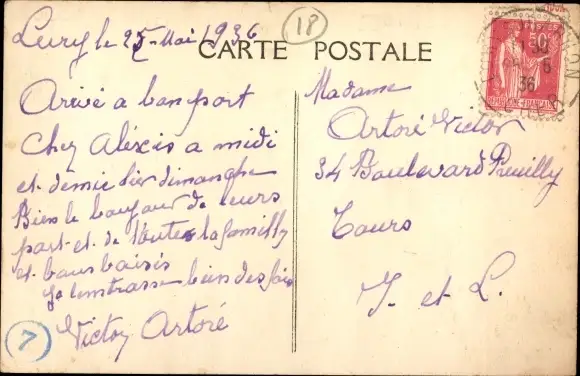 Lury le 25 Mai 1936
18
CARTE POSTALE
Arivé a bon port
Chez Aléxis a midi
et demie hier dimanche
Bien le bonjour de leurs
part et de toute la familly
et bons baisés
Je lembrasse bien des fois
Victor Artoré
7
Madame
Artoré Victor
34 Boulevard Preuilly
Tours
I et L.
POSTES
50c
REPUBLIQUE FRANCAISE
36